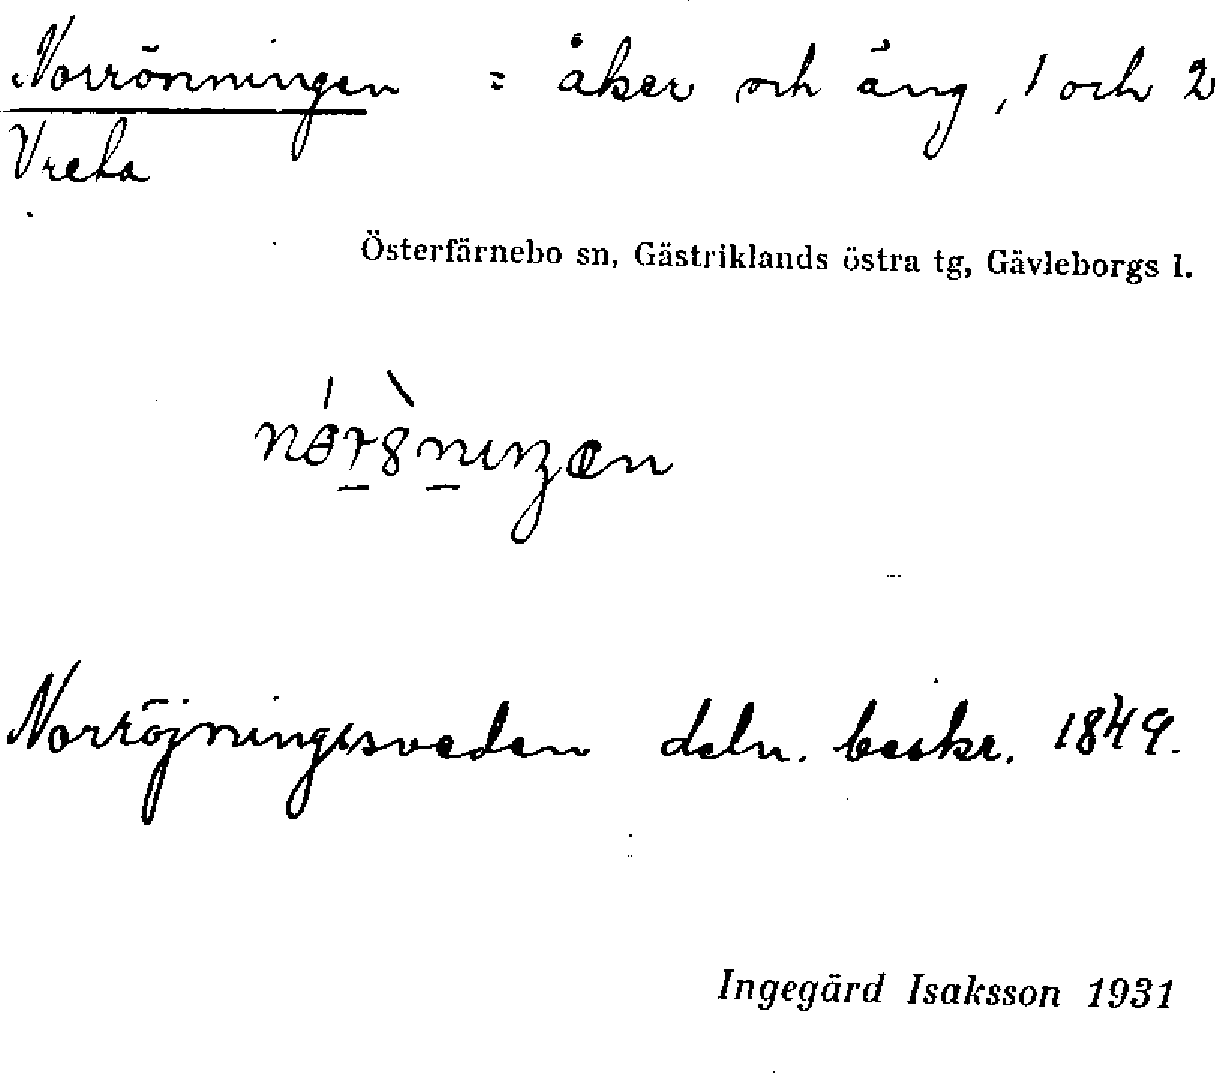 Norrönningen = åker och äng, 1 och 2
Vreta
Österfärnebo sn, Gästriklands östra tg, Gävleborgs l.
Norröjningssveden deln. beskr. 1849.
Ingegärd Isaksson 1931